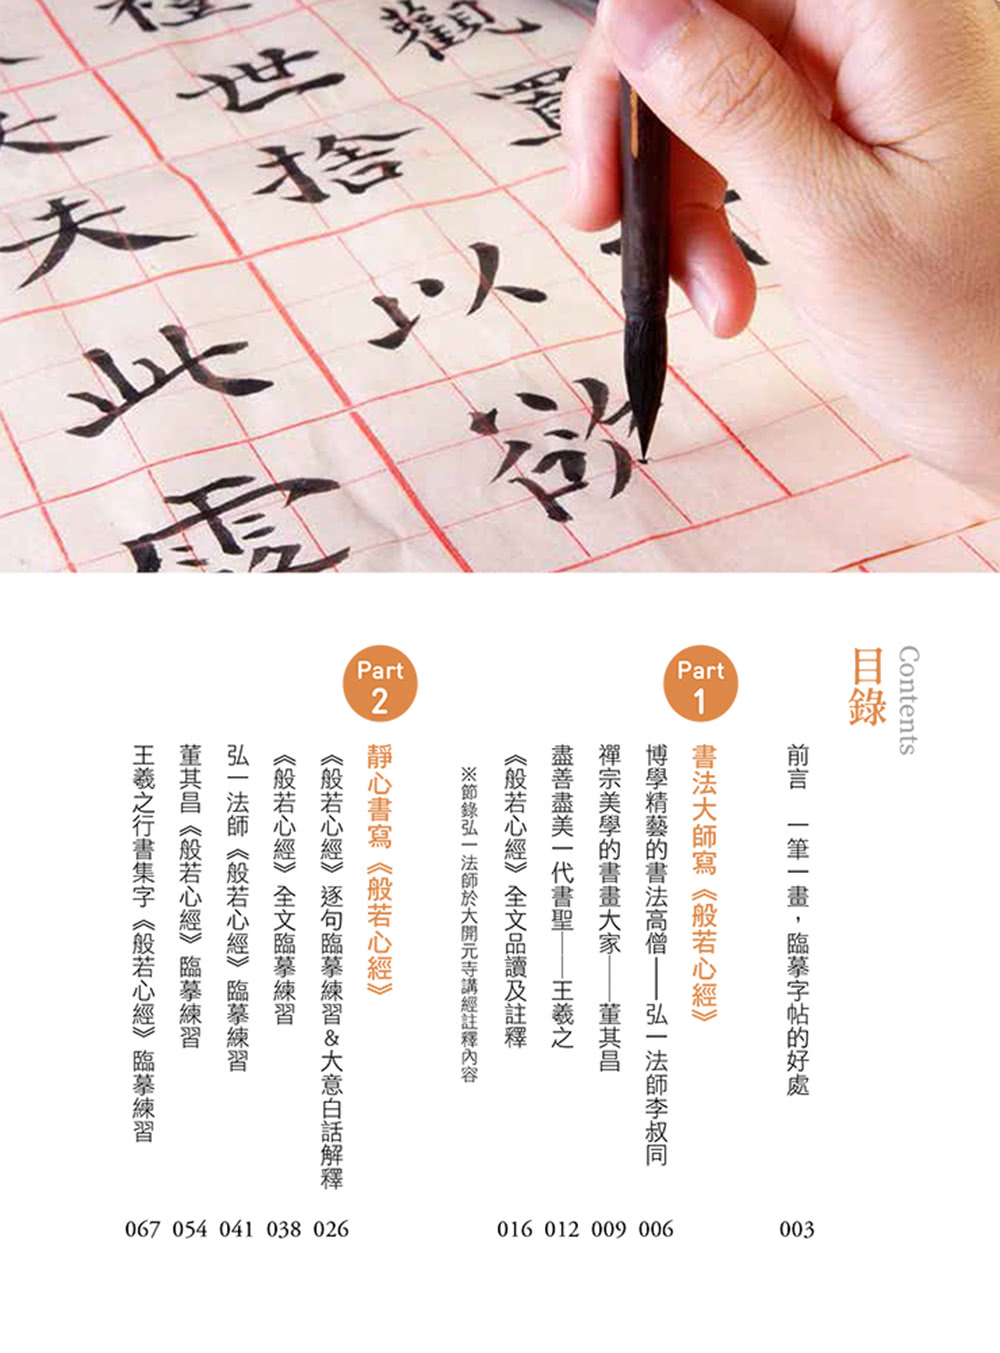 觀
置
世
捨
以
欲
夫
此
Contents
目錄
前言 一筆一畫，臨摹字帖的好處 003
Part 1
書法大師寫《般若心經》
博學精藝的書法高僧——弘一法師李叔同 006
禪宗美學的書畫大家——董其昌 009
盡善盡美一代書聖——王羲之 012
《般若心經》全文品讀及註釋 016
※節錄弘一法師於大開元寺講經註釋內容
Part 2
靜心書寫《般若心經》
《般若心經》逐句臨摹練習&大意白話解釋 026
《般若心經》全文臨摹練習 038
弘一法師《般若心經》臨摹練習 041
董其昌《般若心經》臨摹練習 054
王羲之行書集字《般若心經》臨摹練習 067